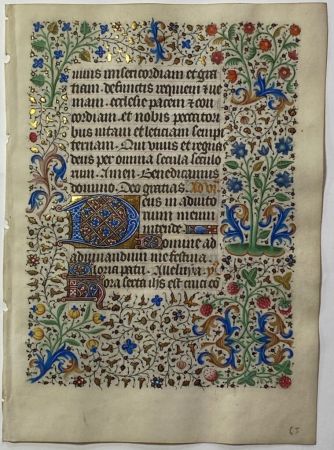 mihi misericordiam et gra
tiam defunctis requiem et ue
niam. ecclesie pacem et con
cordiam. et nobis peccatori
bus uitam et leticiam sempi
ternam. Qui uiuis et regnas
deus per omnia secula seculo
rum. Amen. Benedicamus
domino. Deo gratias. Ad vi
Deus in adiuto
rium meum
intende.
Domine ad
adiuuandum me festina
Gloria patri. Alleluya. y
Hora sexta ihs est cruci co
65